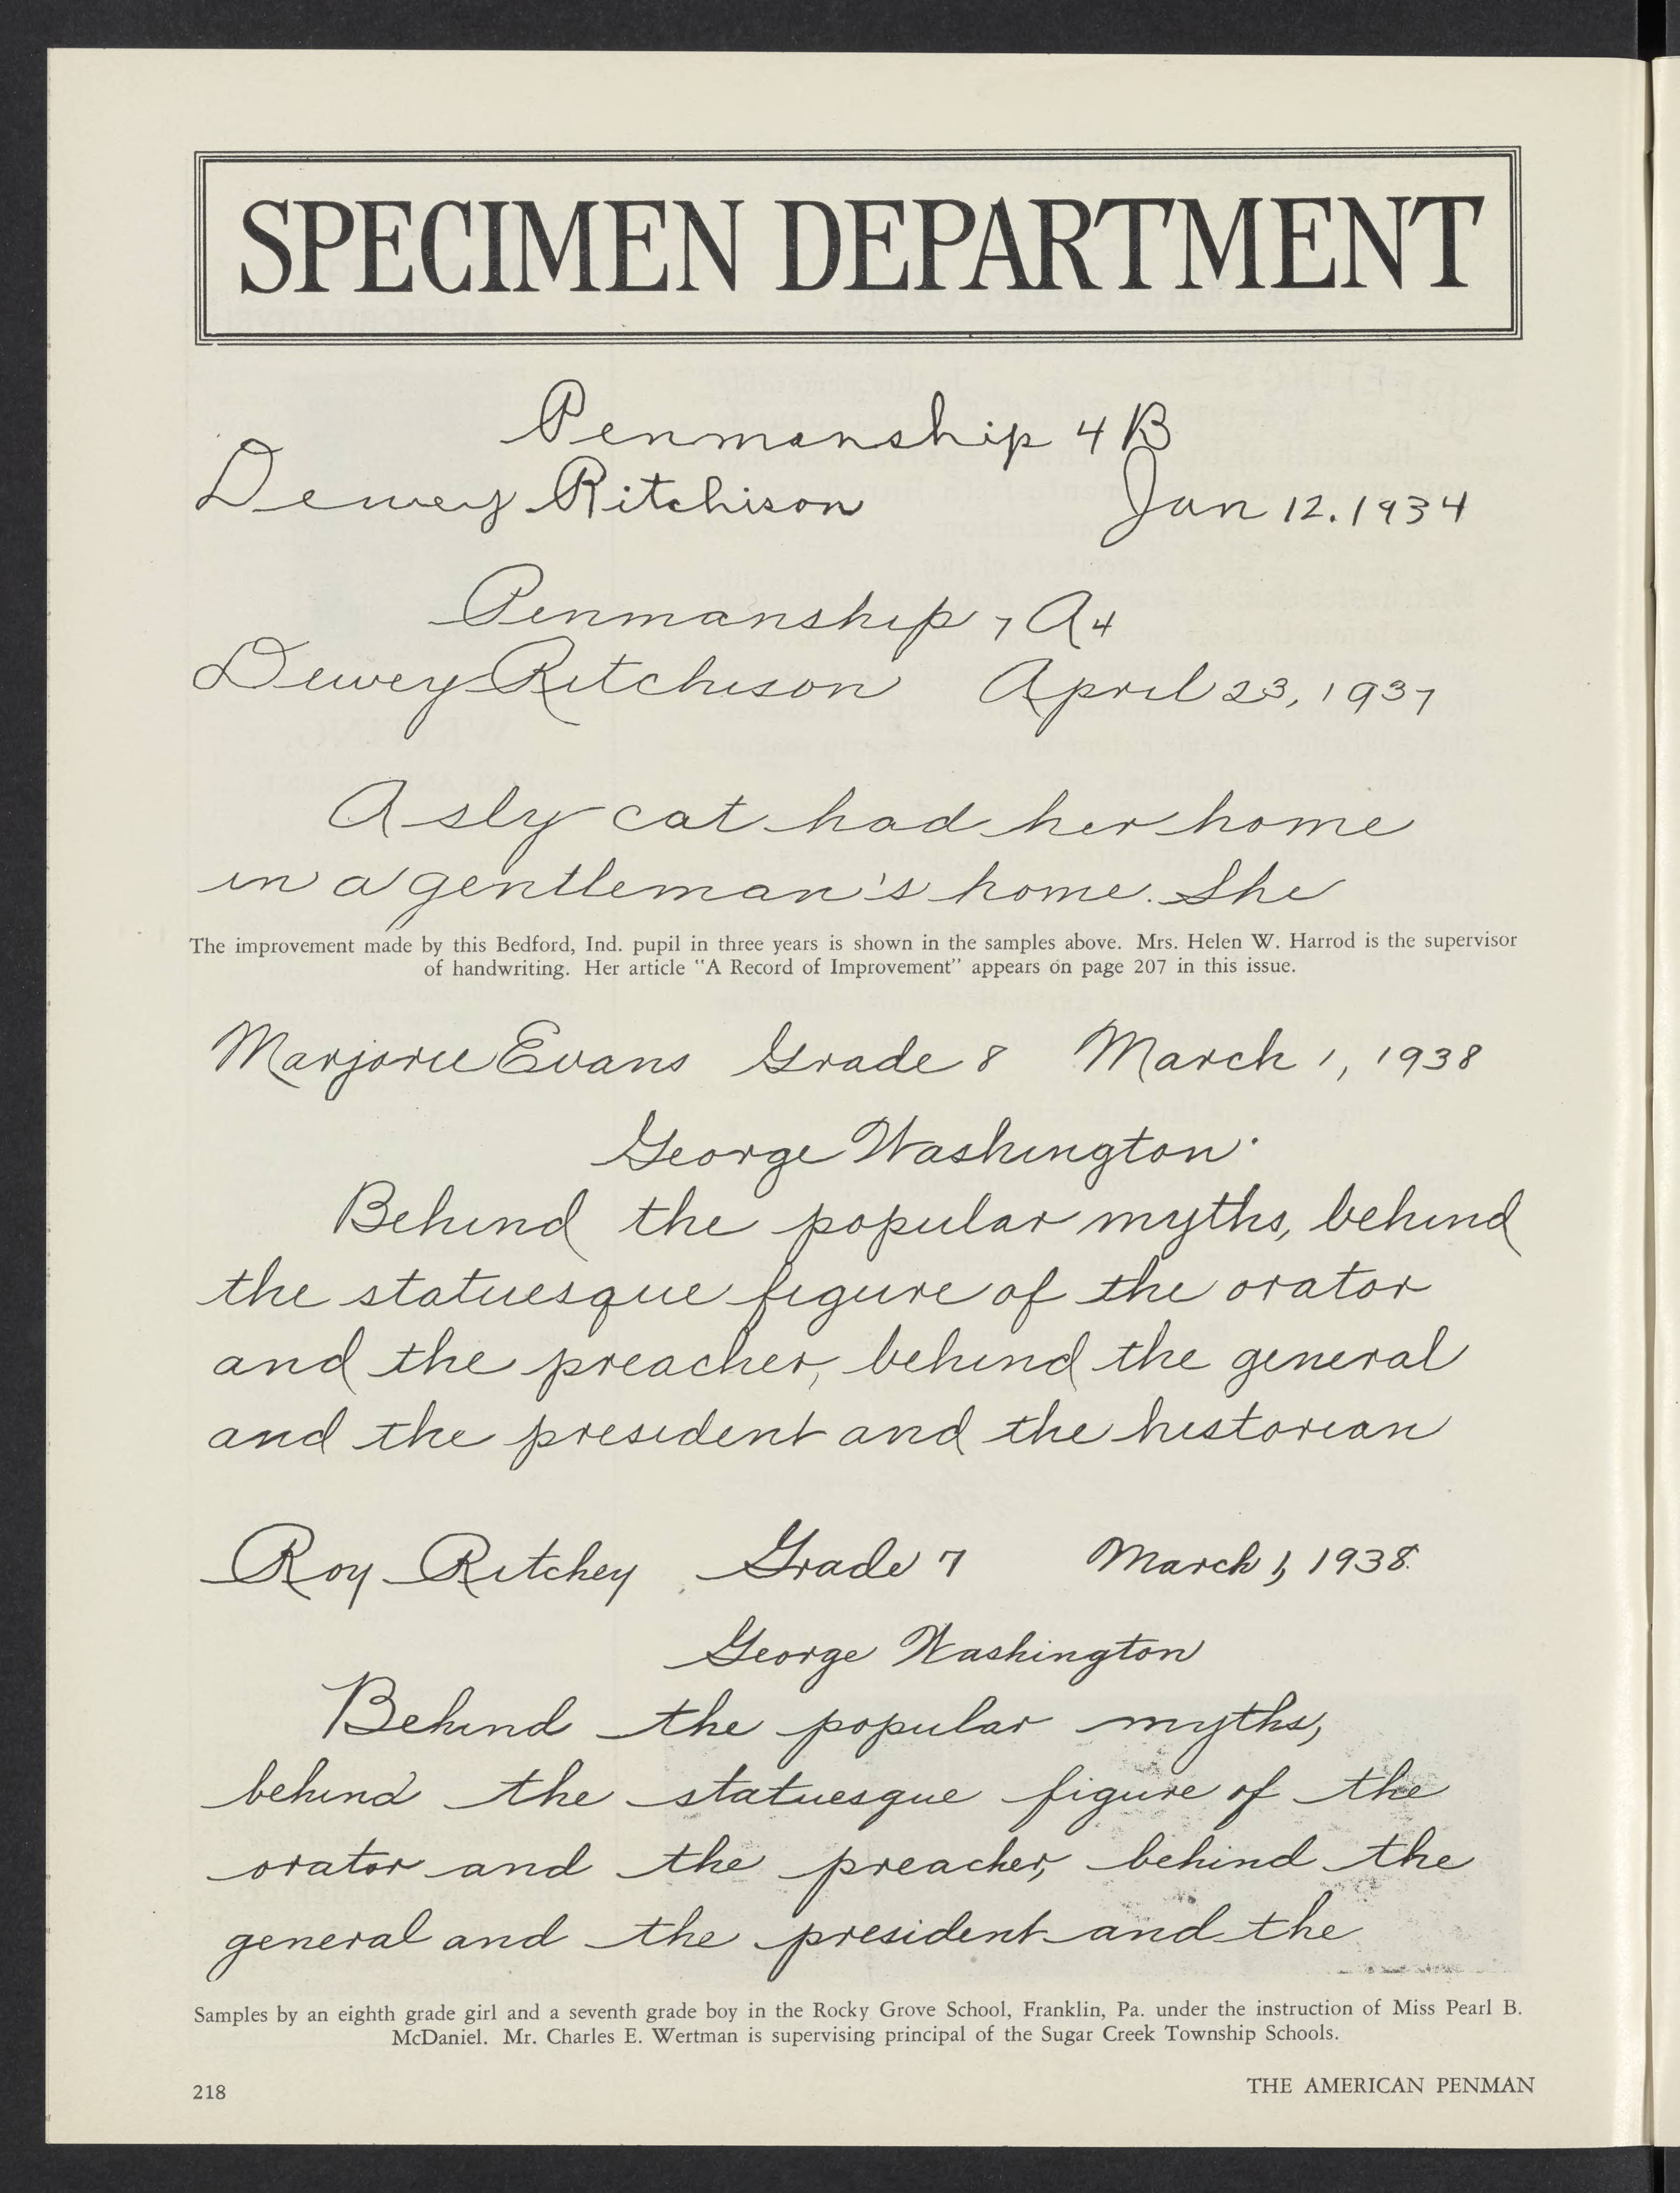 SPECIMEN DEPARTMENT
Penmanship 4B
Dewey Ritchison Jan 12. 1934
Penmanship 7A4
Dewey Ritchison April 23, 1937
A sly cat had her home
in a gentleman's home. She
The improvement made by this Bedford, Ind. pupil in three years is shown in the samples above. Mrs. Helen W. Harrod is the supervisor
of handwriting. Her article "A Record of Improvement" appears on page 207 in this issue.
Marjorie Evans Grade 8 March 1, 1938
George Washington.
Behind the popular myths, behind
the statuesque figure of the orator
and the preacher, behind the general
and the president and the historian
Roy Ritchey Grade 7 March 1, 1938.
George Washington
Behind the popular myths,
behind the statuesque figure of the
orator and the preacher, behind the
general and the president and the
Samples by an eighth grade girl and a seventh grade boy in the Rocky Grove School, Franklin, Pa. under the instruction of Miss Pearl B.
McDaniel. Mr. Charles E. Wertman is supervising principal of the Sugar Creek Township Schools.
218 THE AMERICAN PENMAN